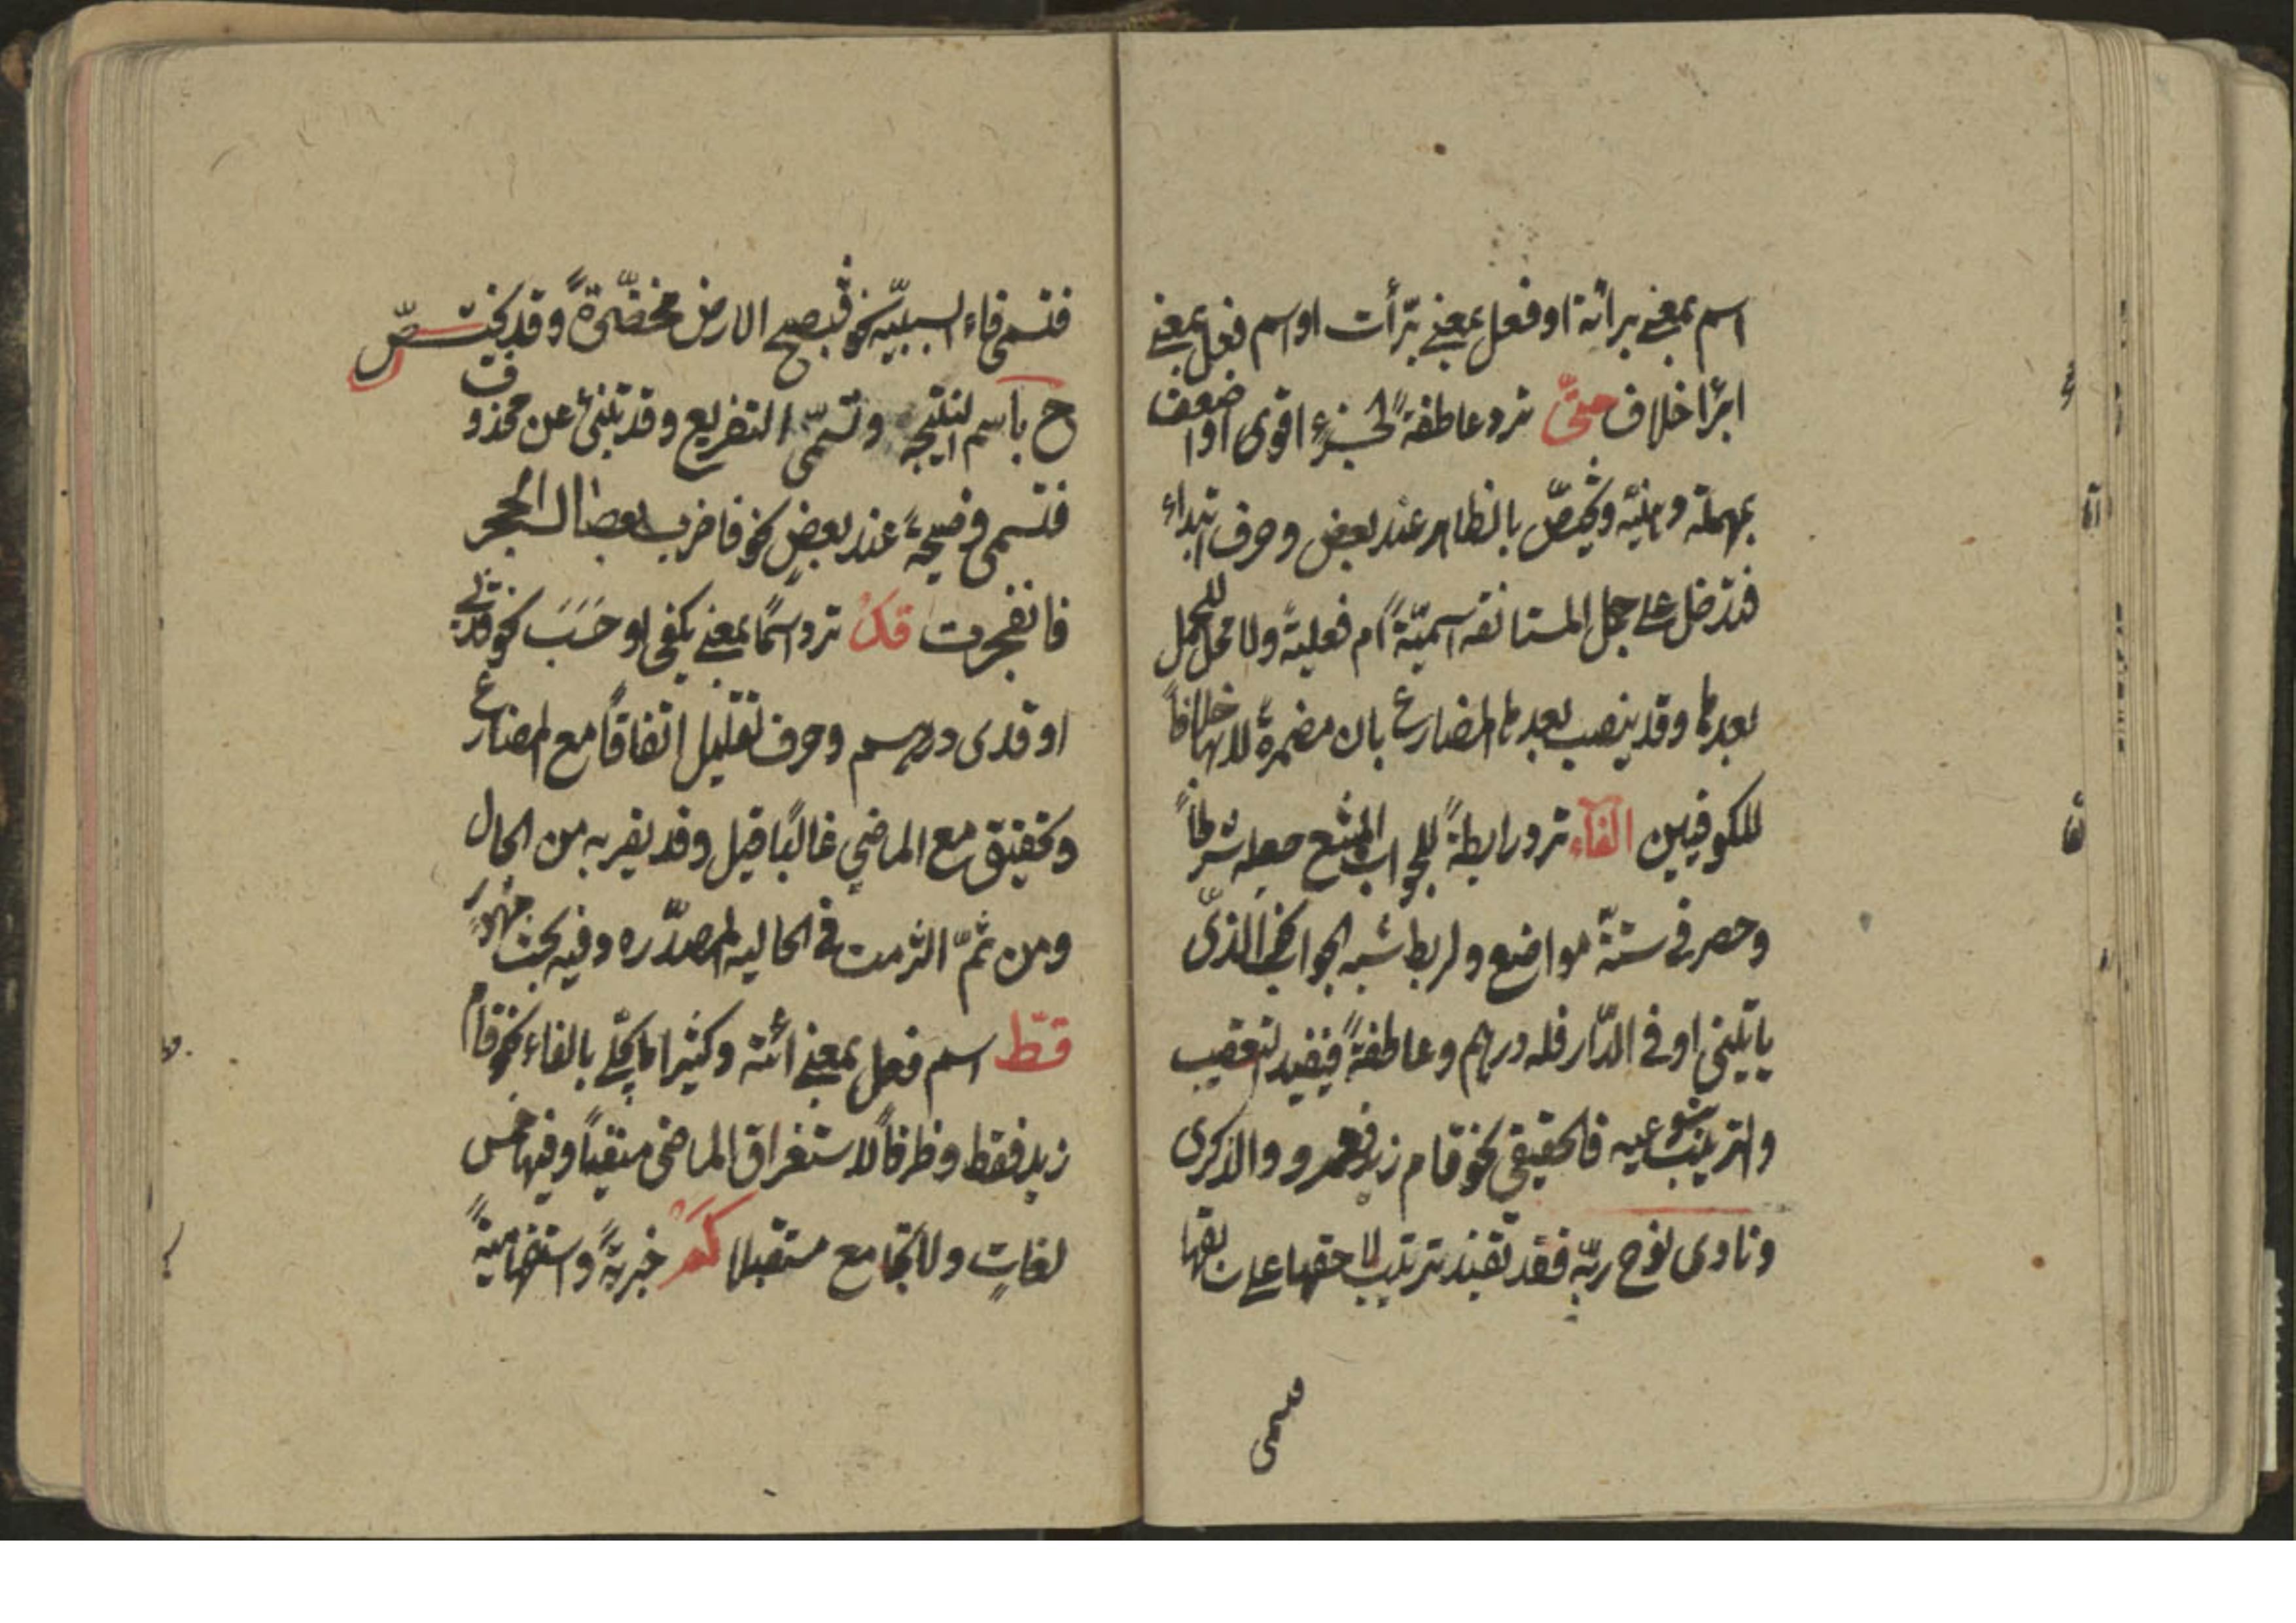 اسم بمعنى براءة او فعل بمعنى برّأت او اسم فعل بمعنى
ابرّا خلاف حتّى ترد عاطفةً لجزءٍ اقوى او اضعف
بمهملة ذهنيّه و تختصّ بالظاهر عند بعض وحرف ابتداء
فتدخل على جمل المستانفه اسميّةً ام فعليةً ولا محل للجمل
بعدها وقد ينصب بعدها المضارع بان مضمرةً لا بها خلافاً
للكوفيين الفاء ترد رابطةً للجواب الممتنع جعله شرطاً
وحصر فى ستّة مواضع ولربط شبه الجواب نحو الّذى
ياتينى او فى الدّار فله درهم وعاطفةً فيفيد التعقيب
والترتيب بنوعيه فالحقيقي نحو قام زيد فعمرو والذكرى
ونادى نوح ربّه فقد تفيد ترتيب لاحقها على سابقها
فتسمى
فتسمى فاء السببيّه نحو فتصبح الارض مخضّرةً وقد تختصّ
ح باسم النتيجه وتسمّى التفريع وقد تنبئ عن محذوف
فتسمى فصيحةً عند بعضٍ نحو فاضرب بعصاك الحجر
فانفجرت قد ترد اسمًا بمعنى يكفى او حَسَبَ نحو قدنى
او قدى درهم وحرف تقليل اتفاقًا مع المضارع
وتحقيق مع الماضي غالبًا قيل وقد يقربه من الحال
ومن ثمّ التزمت فى الحاليه المصدّره وفيه بحث مشهور
قطّ اسم فعل بمعنى انته وكثيرا ما يحلّى بالفاء نحو قام
زيد فقط وظرفاً لاستغراق الماضى منفيّاً وفيها خمس
لغاتٍ ولا تجامع مستقبلا كم خبريةً و استفهاميةً